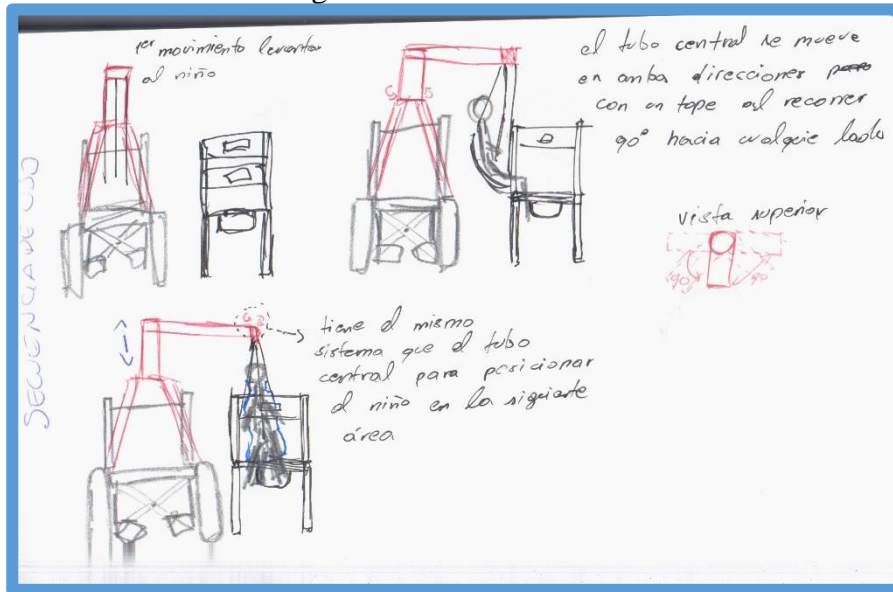 SECUENCIA DE USO
1er movimiento levantar
al niño
el tubo central se mueve
en amba direcciones
con un tope al recorrer
90° hacia cualquie lado
vista superior
90° 90°
tiene el mismo
sistema que el tubo
central para posicionar
al niño en la siguiente
área